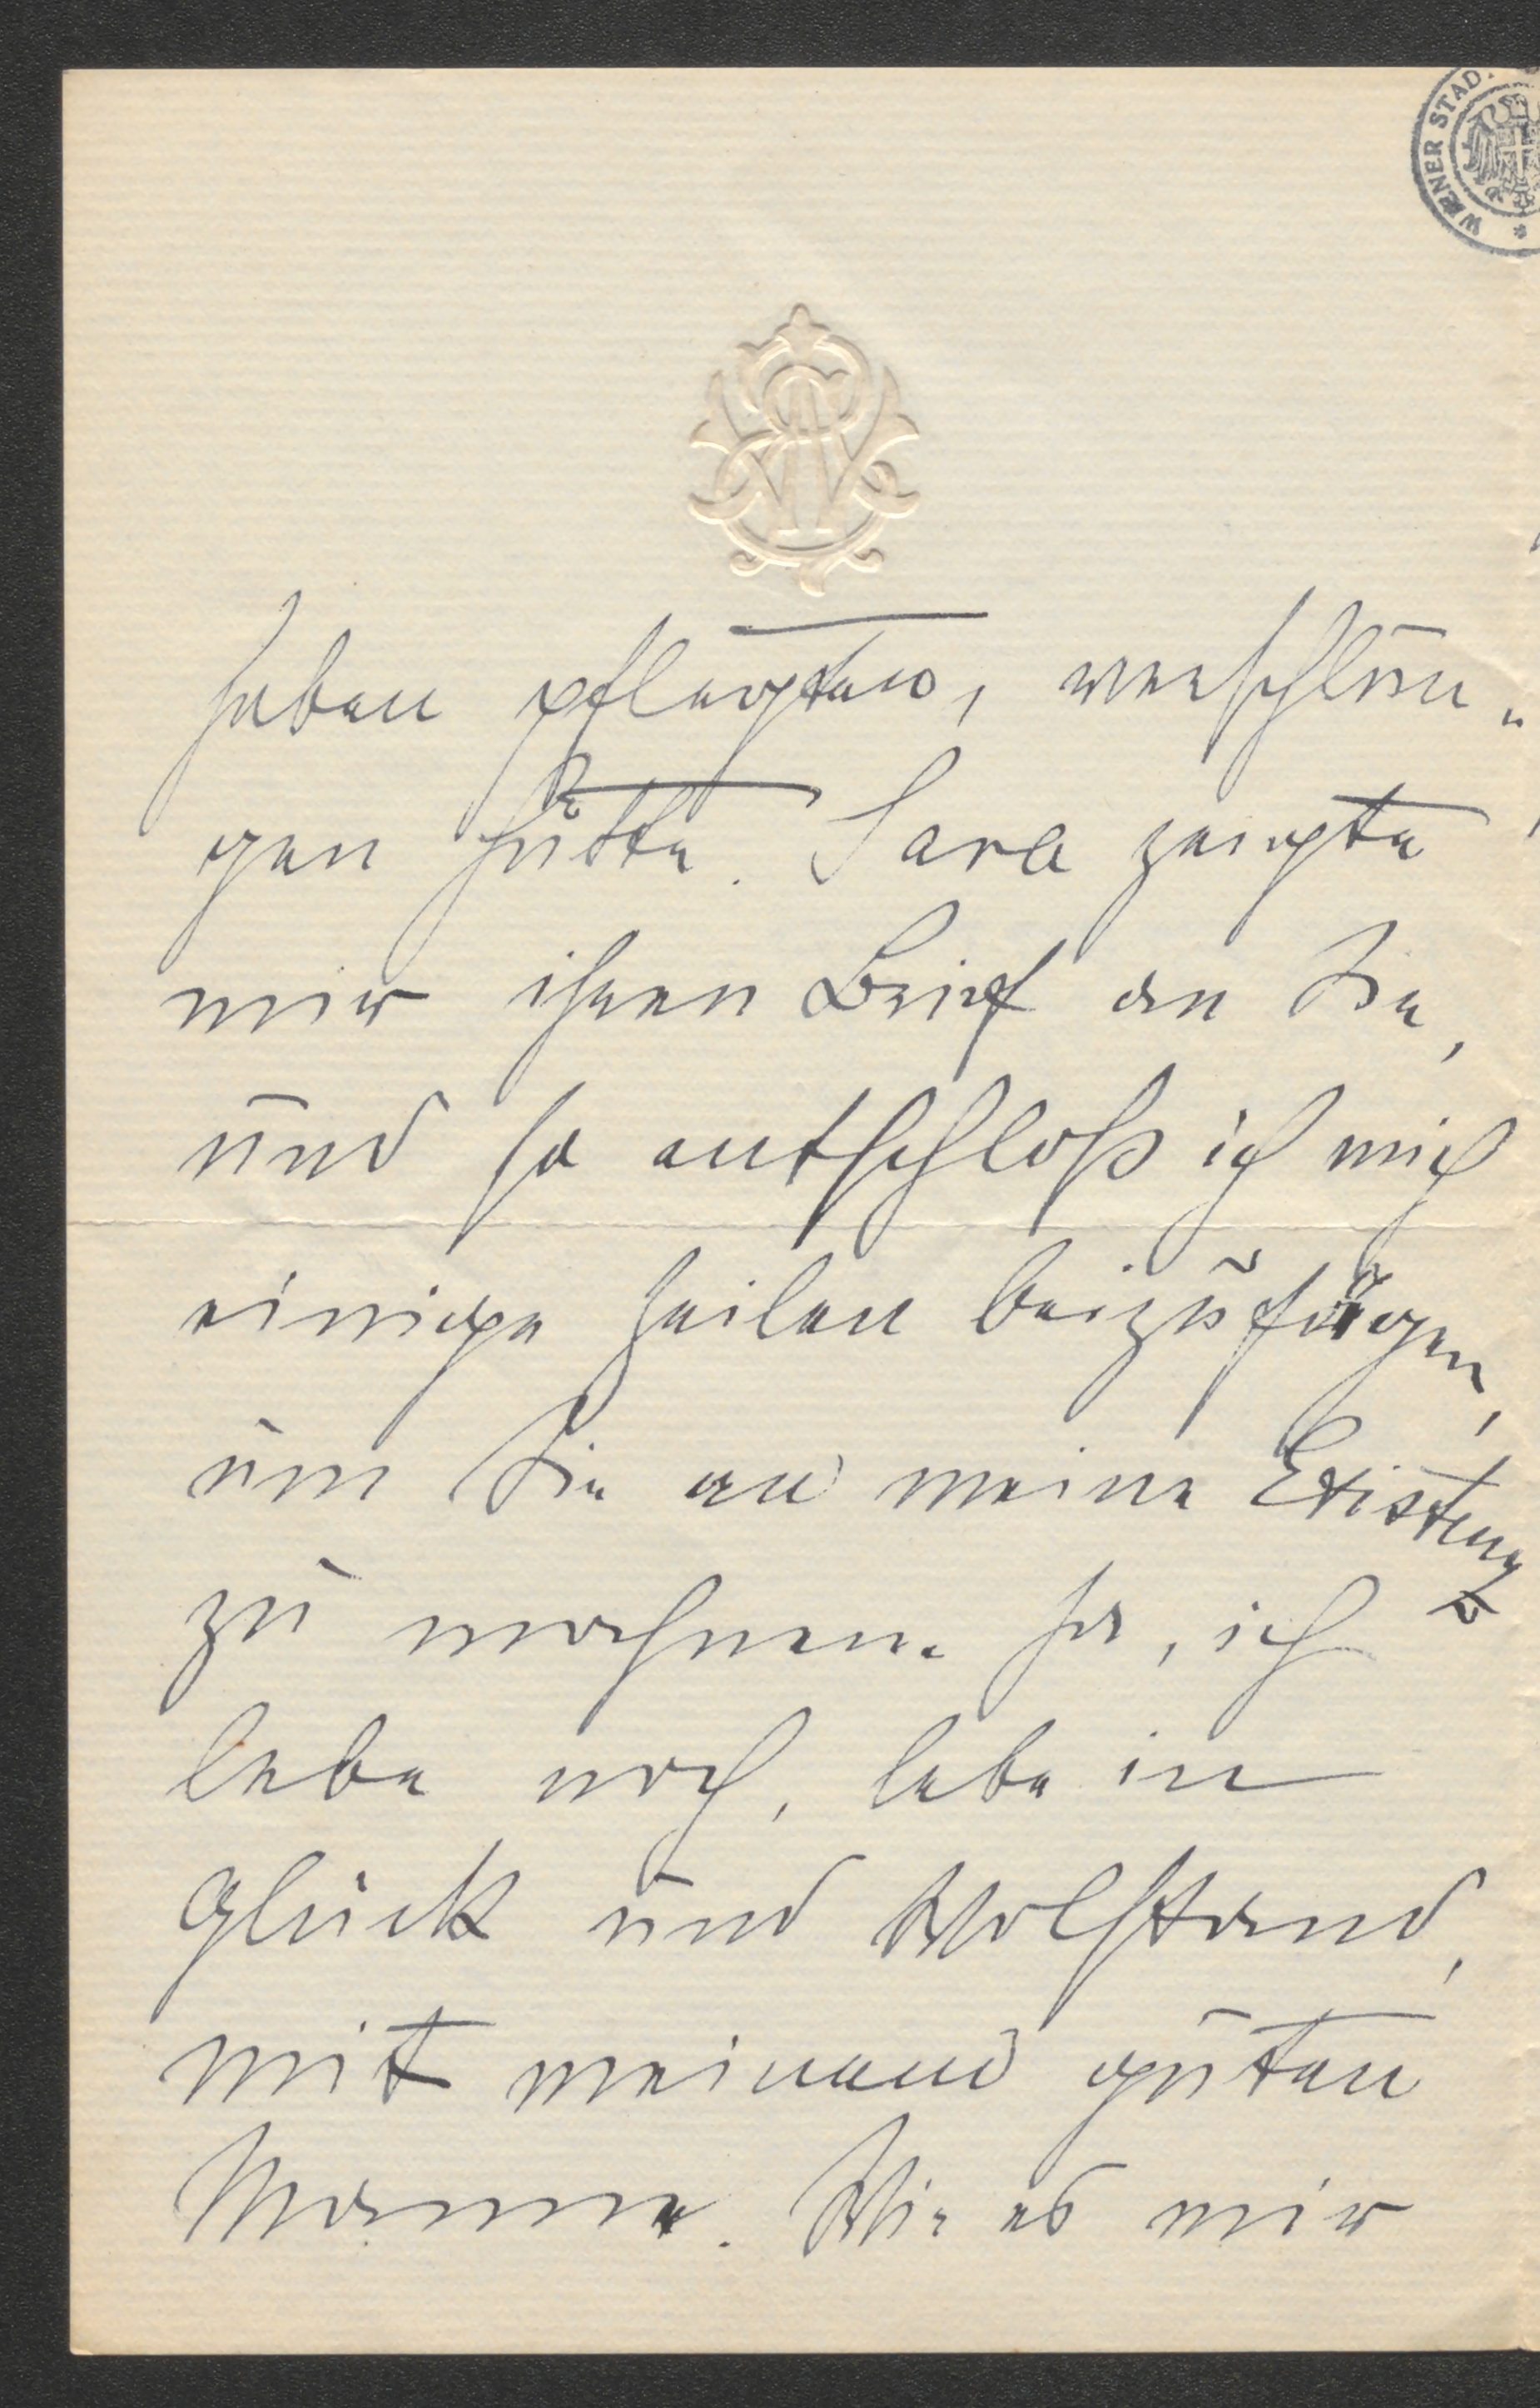 WIENER STAD
haben pflegten, verschlun„
gen hätte. Sara zeigte
mir ihren Brief an Sie,
und so entschloß ich mich
einige Zeilen beizufügen,
um Sie an meine Existenz
zu mahnen. Ja, ich
lebe noch, lebe in
Glück und Wolstand,
mit meinem guten
Manne. Wie es mir